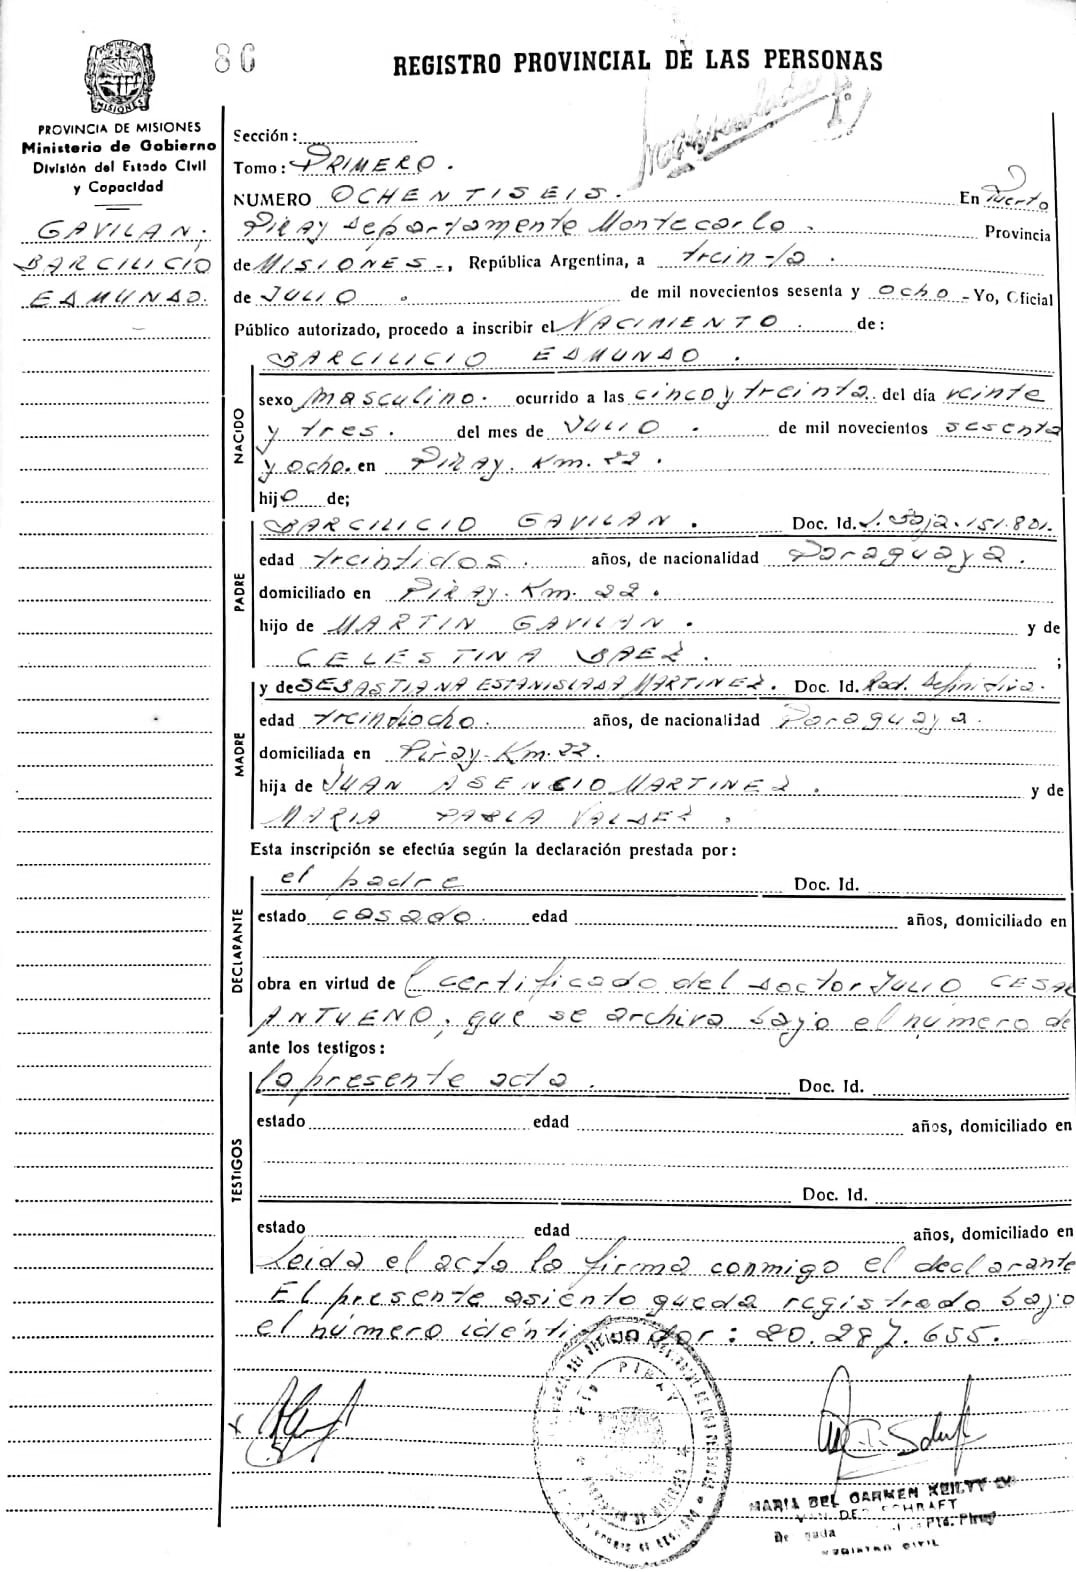 86
REGISTRO PROVINCIAL DE LAS PERSONAS
PROVINCIA DE MISIONES
Ministerio de Gobierno
División del Estado Civil
y Capacidad
GAVILAN;
BARCILICIO
EDMUNDO.
Sección:
Tomo: PRIMERO.
NUMERO OCHENTISEIS. En Puerto
Piray departamento Montecarlo. Provincia
de MISIONES-, República Argentina, a treinta.
de JULIO. de mil novecientos sesenta y ocho - Yo, Oficial
Público autorizado, procedo a inscribir el NACIMIENTO. de:
NACIDO
BARCILICIO EDMUNDO.
sexo masculino. ocurrido a las cinco y treinta. del día veinte
y tres. del mes de JULIO. de mil novecientos sesenta
y ocho. en Piray. Km. 22.
hijo de;
PADRE
BARCILICIO GAVILAN. Doc. Id. 2.151.801.
edad treintidos. años, de nacionalidad Paraguaya.
domiciliado en Piray. Km. 22.
hijo de MARTIN GAVILAN. y de
CELESTINA BAEZ. ;
MADRE
y de SEBASTIANA ESTANISLADA MARTINEZ. Doc. Id. Rad. Definitiva.
edad treintiocho. años, de nacionalidad Paraguaya.
domiciliada en Piray-Km. 22.
hija de JUAN ASENCIO MARTINEZ. y de
MARIA PABLA VALDEZ.
Esta inscripción se efectúa según la declaración prestada por:
DECLARANTE
el padre Doc. Id.
estado casado. edad años, domiciliado en
obra en virtud de l certificado del doctor JULIO CESAR
ANTUENO; que se archiva bajo el número de
ante los testigos:
TESTIGOS
la presente acta. Doc. Id.
estado edad años, domiciliado en
Doc. Id.
estado edad años, domiciliado en
Leida el acta la firma conmigo el declarante
El presente asiento queda registrado bajo
el número identificador: 20.287.655.
PIRAY
MARIA DEL CARMEN KEILTY
Pto. Piray
REGISTRO CIVIL